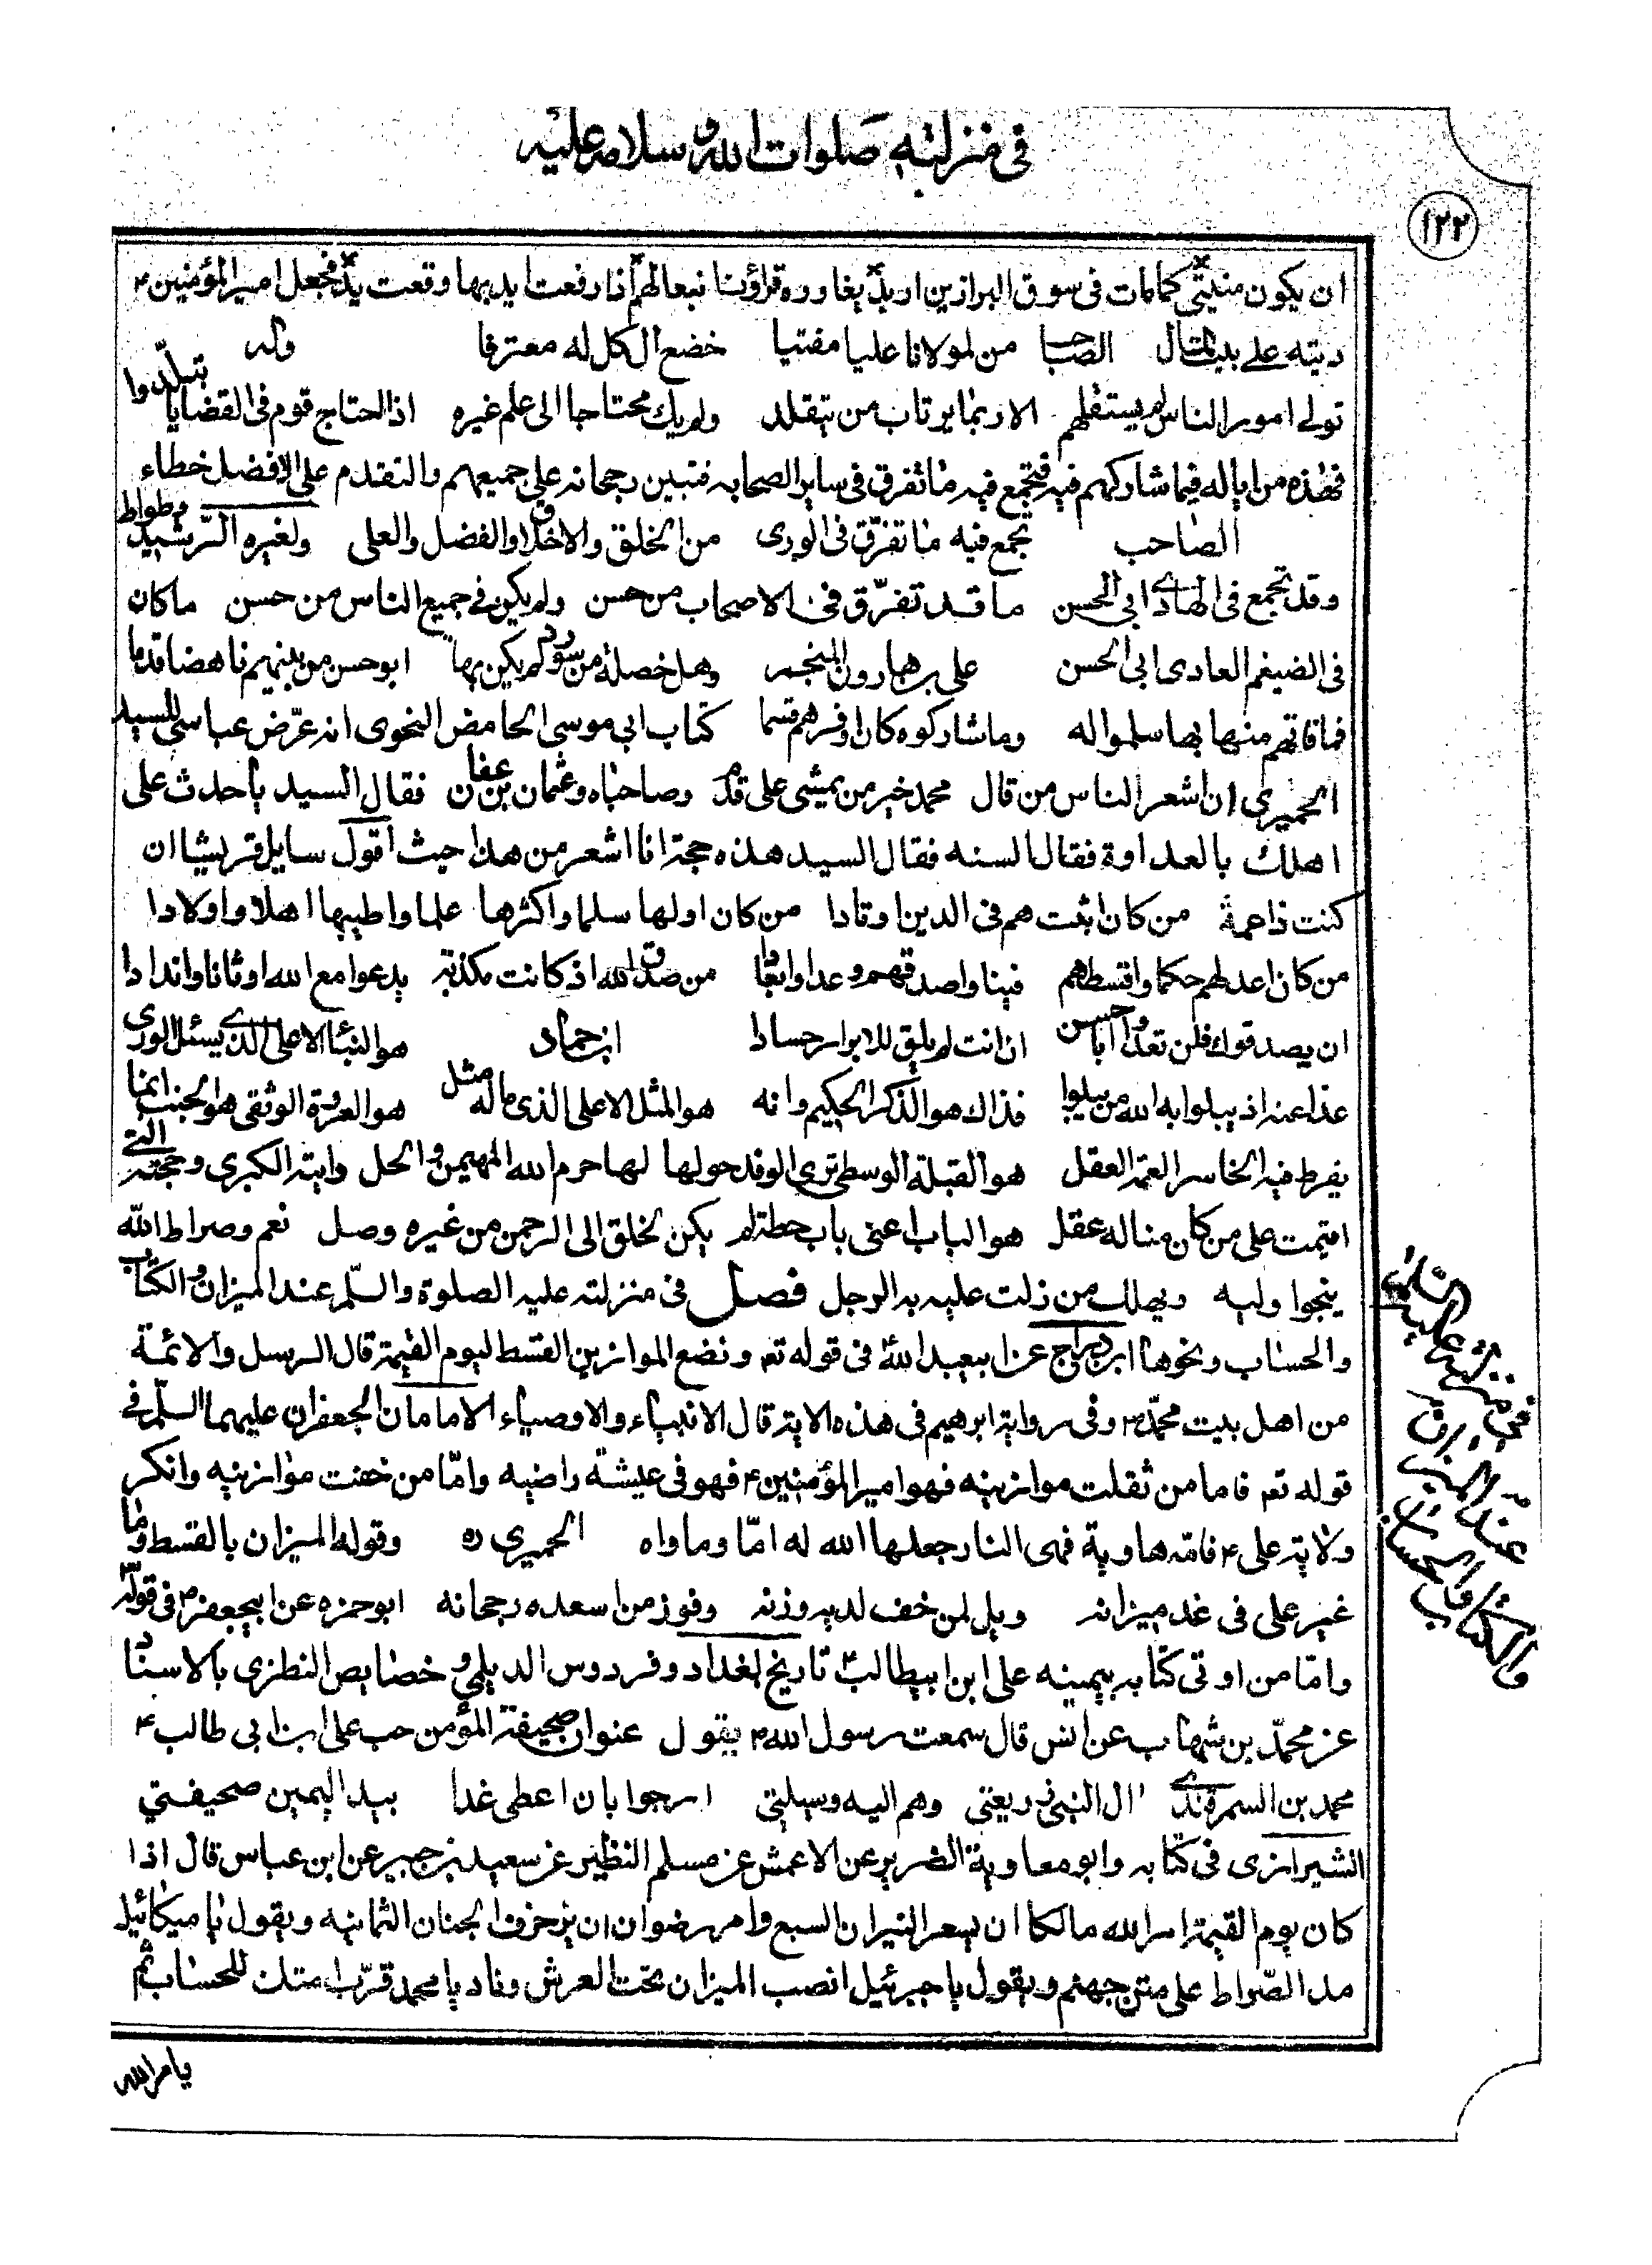 في منزلته صلوات الله و سلامه عليه
١٢٢
ان يكون منيتي كما مات في سوق البرازين اربد بغا وره قراؤنا نبعالهم اذا رفعت ايد بها وقعت يد فجعل امير المؤمنين ۴
ديته على بيت المال الصاحب من لمولانا عليا مفتيا خضع الكل له معترفا وله
تولى امور الناس لم يستقلهم الا ربما يرتاب من يتقلد ولم يك محتاجا الى علم غيره اذا احتاج قوم في القضايا تبلدوا
فهذه من اياله فيما شاركهم فيه فتجمع فيه ما تفرق في ساير الصحابه فتبين رجحانه على جميعهم والتقدم على الافضل خطاء
الصاحب تجمع فيه ما تفرّق في الورى من الخلق والاخلاق والفضل والعلى ولغيره الرّشيد وطواط
وقد تجمع في الهادي ابي الحسن ما قد تفرّق في الاصحاب من حسن ولم يكن في جميع الناس من حسن ما كان
في الضيغم العادى ابى الحسن على بن هارون المنجم وهل خصلة من سودد لم يكن بها ابو حسن من بينهم ناهضا قدما
فما فاتهم منها بها سلموا له وما شاركوه كان اوفرهم قسما كتاب ابى موسى الحامض النحوى انه عرّض عباسى للسيد
الحميري ان اشعر الناس من قال محمد خير من يمشى على قدم وصاحباه وعثمان بن عفان فقال السيد يا حدث على
اهلك بالعداوة فقال السنه فقال السيد هذه حجة انا اشعر من هذا حيث اقول سايل قريشا ان
كنت ذا عمة من كان اثبتهم في الدين اوتادا من كان اولها سلما واكثرها علما واطيبها اهلا واولادا
من كان اعدلهم حكما واقسطهم فينا واصدقهم وعدا وايعادا من صدق الله اذ كانت مكذبة يدعوا مع الله اوثانا واندادا
ان يصدقوك فلن تعدوا ابا حسن ان انت لم يلق للابرار حسادا ابن حماد هو النبئا الاعلى الذي يسئل الورى
غدا عنه اذ يبلوا به الله من يبلوا فذاك هو الذكر الحكيم وانه هو المثل الاعلى الذى ماله مثل هو العروة الوثقى هو الجنب انما
يفرط فيه الخاسر العمه العقل هو القبلة الوسطى ترى الوفد حولها لها حرم الله المهيمن والحل وايته الكبرى وحجته التي
اقيمت على من كان مناله عقل هو الباب اعنى باب حطة لم يكن لخلق الى الرحمن من غيره وصل نعم وصراط الله
ينجوا وليه ويهلك من زلت عليه به الرجل فصل في منزلته عليه الصلوة والسّلم عند الميزان والكتاب
والحساب ونحوها ابن دراج عن ابيعبد الله في قوله تعـ ونضع الموازين القسط ليوم القيمة قال الرسل والائمة
من اهل بيت محمّد وفي رواية ابرهيم في هذه الاية قال الانبياء والاوصياء الامامان الجعفران عليهما السلّم في
قوله تعـ فاما من ثقلت موازينه فهو امير المؤمنين ۴ فهو في عيشة راضيه وامّا من خفت موازينه وانكر
ولاية على ۴ فامّه هاوية فهى النار جعلها الله له امّا وماواه الحميرى ره وقوله الميزان بالقسط وما
غير على في غد ميزانه ويل لمن خف لديه وزنه وفوز من اسعده رجحانه ابو حمزه عن ابيجعفر في قوله
وامّا من اوتى كتابه بيمينه على ابن ابيطالب تاريخ بغداد وفردوس الديلمي وخصايص النطنزى بالاسناد
عن محمّد بن شهاب عن انس قال سمعت رسول الله يقول عنوان صحيفة المؤمن حب على ابن ابى طالب ۴
محمد بن السمرقندي ال النبي ذريعتي وهم اليه وسيلتي ارجوا بان اعطى غدا بيد اليمين صحيفتي
الشيرازى في كتابه وابو معاوية الضرير عن الاعمش عن مسلم البطين عن سعيد بن جبير عن ابن عباس قال اذا
كان يوم القيمة امر الله مالكا ان يسعر النيران السبع وامر رضوان ان يزخرف الجنان الثمانيه ويقول يا ميكائيل
مد الصّراط على متن جهنم ويقول يا جبرئيل انصب الميزان تحت العرش وناد يا محمد قرّب امتك للحساب ثم
يامر الله
في منزلته عليه السلام
عند الميزان
والكتاب والحساب